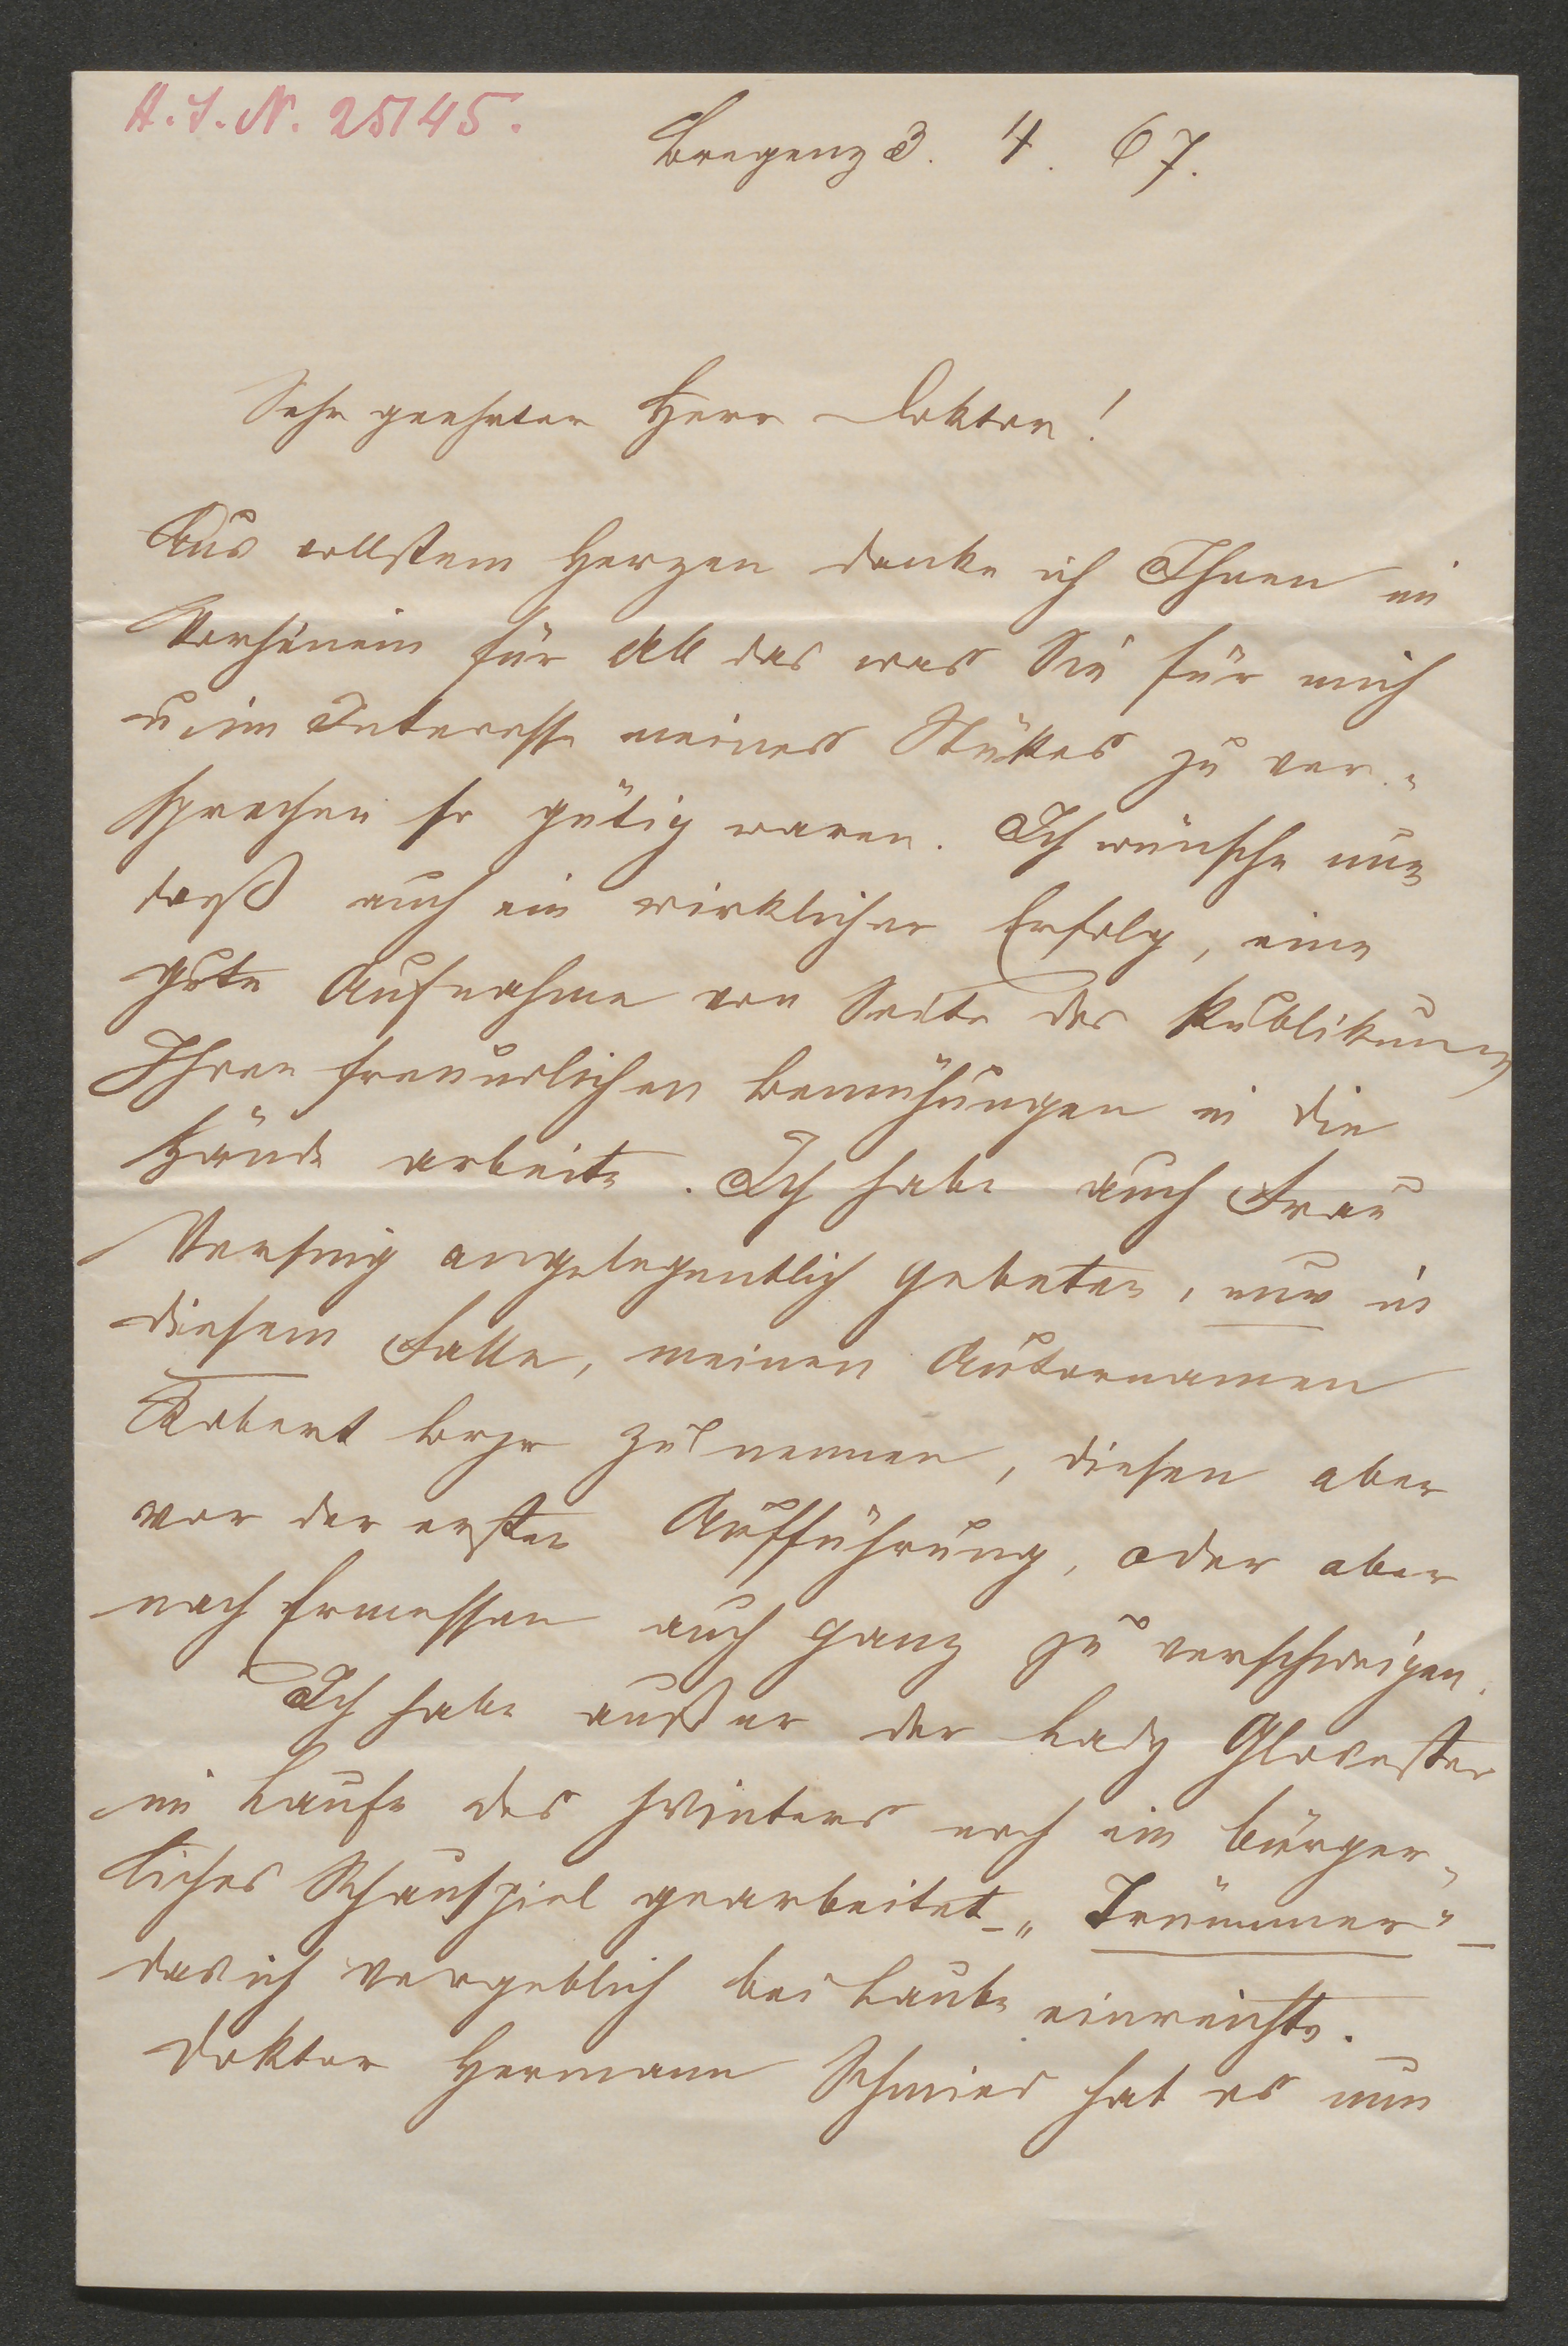 H.I.N. 25145.
Bregenz 3. 4. 67.
Sehr geehrter Herr Doktor!
Aus vollstem Herzen danke ich Ihnen im
Vorhinein für All das was Sie für mich
u. im Interesse meines Stükes zu ver-
sprechen so gütig waren. Ich wünsche nur
daß auch ein wirklicher Erfolg, eine
gute Aufnahme von Seite des Publikums
Ihren freundlichen Bemühungen in die
Hände arbeite. Ich habe auch Frau
Versing angelegentlich gebeten, nur in
diesem Falle, meinen Autornamen
Robert Byr zu nennen, diesen aber
vor der ersten Aufführung, oder aber
nach Ermessen auch ganz zu verschweigen.
Ich habe außer der Lady Glocester
im Laufe des Winters noch ein bürger-
liches Schauspiel gearbeitet - „Trümmer" -
das ich vergeblich bei Laube einreichte.
Doktor Hermann Schmied hat es nun